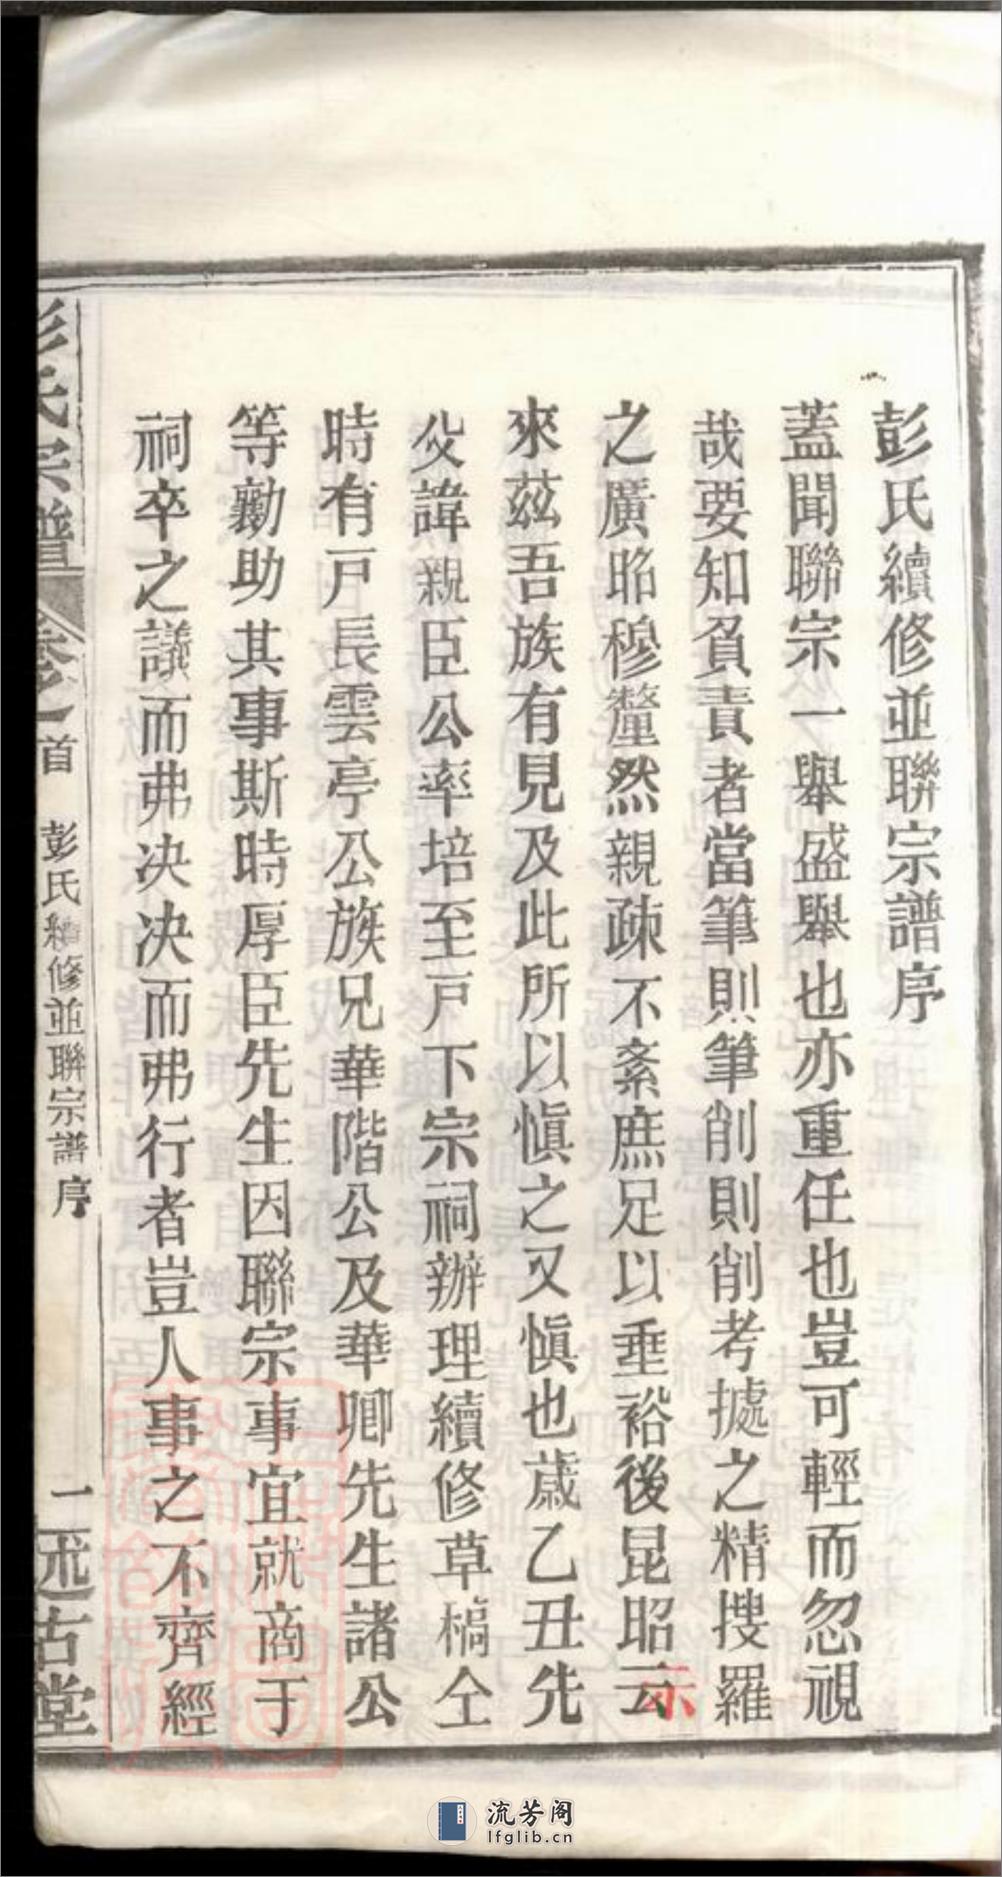 彭氏續修並聯宗譜序
蓋聞聯宗一舉盛舉也亦重任也豈可輕而忽視
哉要知負責者當筆則筆削則削考據之精搜羅
之廣昭穆釐然親疎不紊庶足以垂裕後昆昭示
來茲吾族有見及此所以慎之又慎也歲乙丑先
父諱親臣公率培至戸下宗祠辦理續修草槁仝
時有戸長雲亭公族兄華階公及華卿先生諸公
等勷助其事斯時厚臣先生因聯宗事宜就商于
祠卒之議而弗决决而弗行者豈人事之不齊經
彭氏宗譜
卷之首
彭氏續修並聯宗譜序
一
述古堂
流芳阁
lfglib.cn